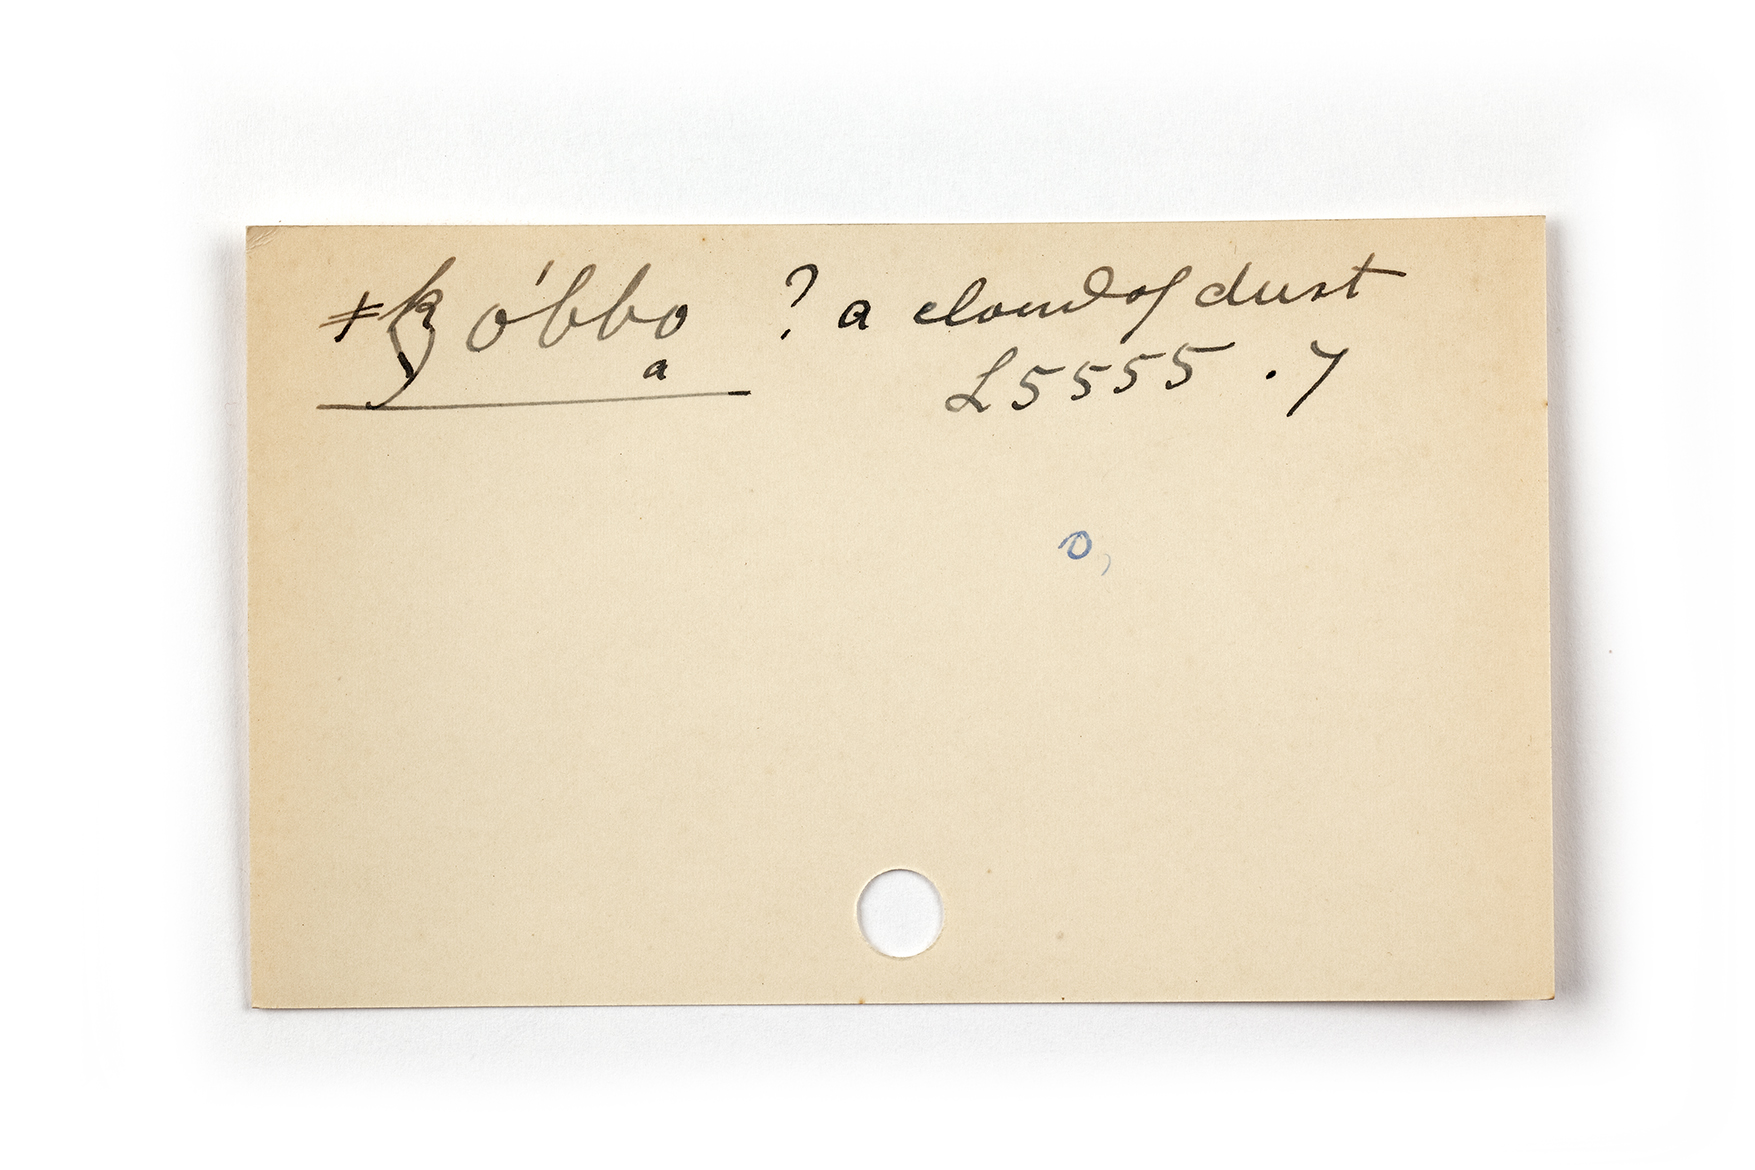 ǂkóbbo ? a cloud of dust
a
L5555 . 7
o,